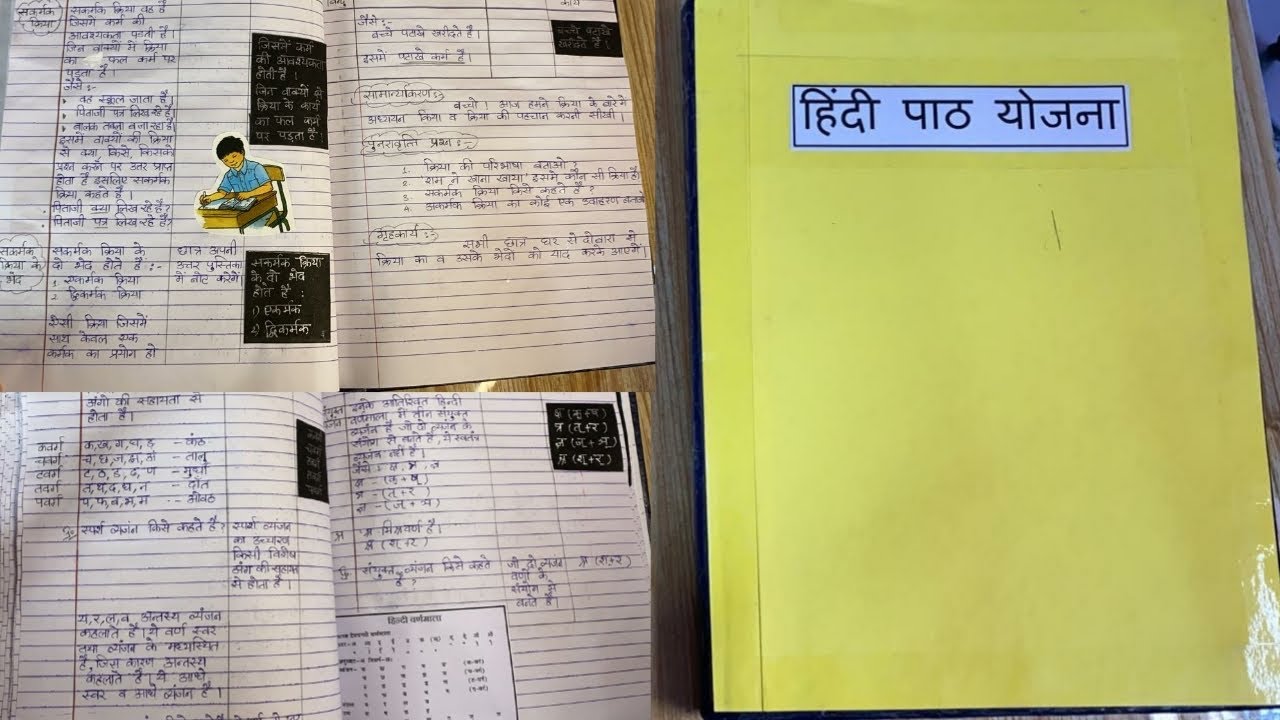 सकर्मक
क्रिया
सकर्मक क्रिया वह है
जिसमें कर्म की
आवश्यकता पड़ती है।
जिन वाक्यों में क्रिया
का फल कर्म पर
पड़ता है।
जैसे :-
वह स्कूल जाता है
पिताजी पत्र लिख रहे हैं
बालक तबला बजा रहा है
इसमें वाक्यों की क्रिया
से क्या, किसे, किसको
प्रश्न करने पर उत्तर प्राप्त
होता है इसलिए सकर्मक
क्रिया कहते हैं।
पिताजी क्या लिख रहे हैं?
पिताजी पत्र लिख रहे हैं?
जिसमें कर्म
की आवश्यकता
होती है।
जिन वाक्यों की
क्रिया के कार्य
का फल कर्म
पर पड़ता है।
सकर्मक
क्रिया के
भेद
सकर्मक क्रिया के
दो भेद होते हैं :-
1. एकर्मक क्रिया
2. द्विकर्मक क्रिया
ऐसी क्रिया जिसमें
साथ केवल एक
कर्मक का प्रयोग हो
छात्र अपनी
उत्तर पुस्तिका
में नोट करेंगे।
सकर्मक क्रिया
के दो भेद
होते हैं :
1) एकर्मक
2) द्विकर्मक
कार्य
जैसे :-
बच्चे पटाखे खरीदते हैं।
इसमें पटाखे कर्म है।
बच्चे पटाखे
खरीदते हैं।
सामान्यीकरण :-
बच्चों। आज हमने क्रिया के बारे में
अध्ययन किया व क्रिया की पहचान करनी सीखी।
पुनरावृत्ति प्रश्न :-
1. क्रिया की परिभाषा बताओ ?
2. राम ने खाना खाया इसमें कौन सी क्रिया है।
3. सकर्मक क्रिया किसे कहते हैं ?
4. अकर्मक क्रिया का कोई एक उदाहरण बताओ
गृहकार्य :-
सभी छात्र घर से दोबारा से
क्रिया का व उसके भेदों को याद करके आएंगे।
अंगों की सहायता से
होता है।
कवर्ग क, ख, ग, घ, ङ - कंठ
चवर्ग च, छ, ज, झ, ञ - तालु
टवर्ग ट, ठ, ड, ढ, ण - मुर्धा
तवर्ग त, थ, द, ध, न - दाँत
पवर्ग प, फ, ब, भ, म - ओष्ठ
प्र॰ स्पर्श व्यंजन किसे कहते है?
स्पर्श व्यंजन
का उच्चारण
किसी विशेष
अंग की सहायता
से होता है।
य, र, ल, व, अन्तस्थ व्यंजन
कहलाते हैं। ये वर्ण स्वर
तथा व्यंजन के मध्यस्थित
हैं, जिस कारण अन्तस्थ
कहलाते हैं। ये आधे
स्वर व आधे व्यंजन हैं।
संयुक्त
व्यंजन
इनके अतिरिक्त हिन्दी
वर्णमाला में तीन संयुक्त
व्यंजन हैं जो दो व्यंजन के
संयोग से बनते हैं, ये स्वतंत्र
व्यंजन नहीं हैं।
जैसे : क्ष, त्र, ज्ञ
क्ष - (क् + ष्)
त्र - (त् + र)
ज्ञ - (ज् + ञ)
श्र
श्र मिश्रवर्ण है।
श्र (श् + र)
क्ष (क् + ष)
त्र (त् + र)
ज्ञ (ज् + ञ)
श्र (श् + र्)
प्र॰ संयुक्त व्यंजन किसे कहते
हैं ?
जो दो व्यंजन
वर्णों के
संयोग से
बनते हैं
श्र (श् + र)
हिन्दी वर्णमाला
हिंदी पाठ योजना